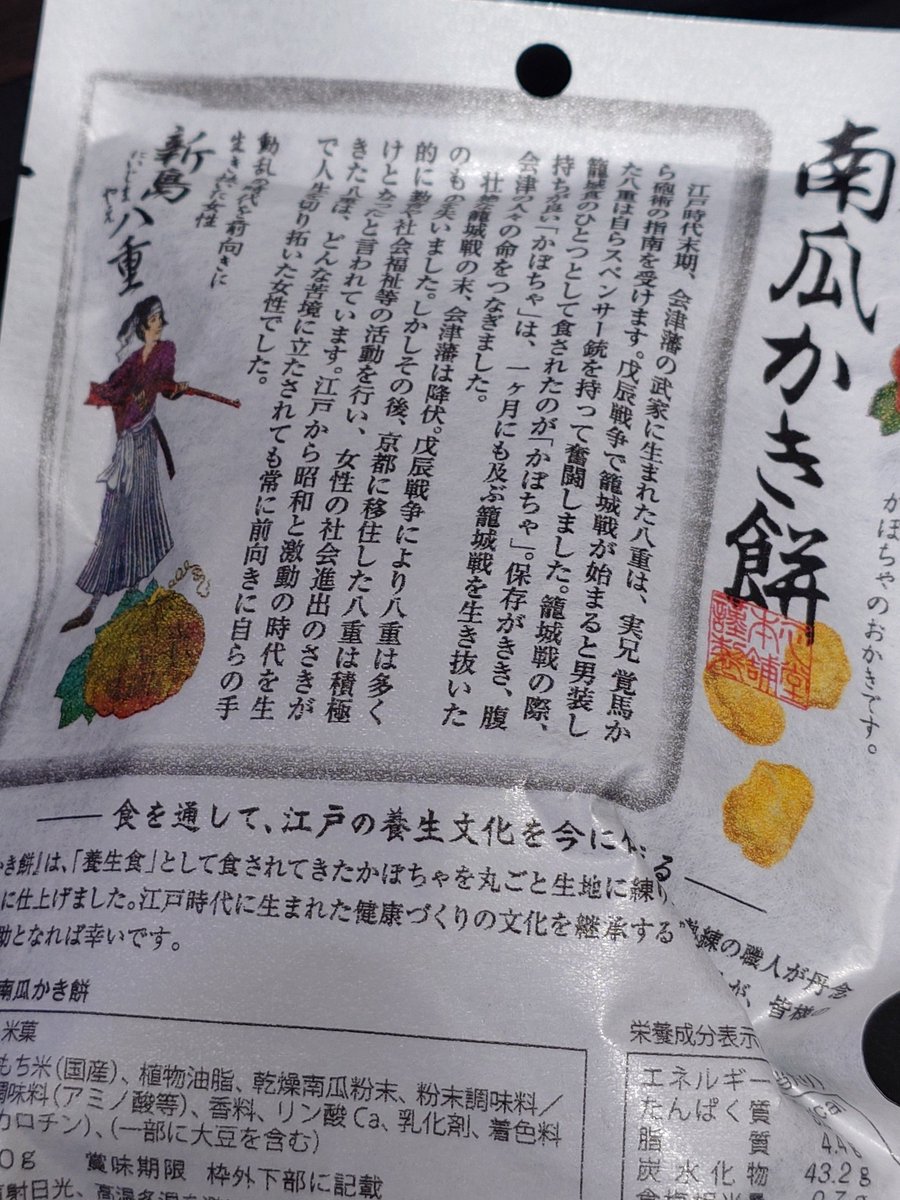 南瓜かき餅
かぼちゃのおかきです。
本舗
謹製
江戸時代末期、会津藩の武家に生まれた八重は、実兄 覚馬か
ら砲術の指南を受けます。戊辰戦争で籠城戦が始まると男装し
た八重は自らスペンサー銃を持って奮闘しました。籠城戦の際、
籠城食のひとつとして食されたのが「かぼちゃ」。保存がきき、腹
持ちが良い「かぼちゃ」は、一ヶ月にも及ぶ籠城戦を生き抜いた
会津の人々の命をつなぎました。
壮絶な籠城戦の末、会津藩は降伏。戊辰戦争により八重は多く
のものを失いました。しかしその後、京都に移住した八重は積極
的に や社会福祉等の活動を行い、女性の社会進出のさきが
けとなったと言われています。江戸から昭和と激動の時代を生
きた八重は、どんな苦境に立たされても常に前向きに自らの手
で人生を切り拓いた女性でした。
動乱の時代を前向きに
生き抜いた女性
新島八重
にいじま やえ
食を通して、江戸の養生文化を今に伝える
き餅』は、「養生食」として食されてきたかぼちゃを丸ごと生地に練り
熟練の職人が丹念
に仕上げました。江戸時代に生まれた健康づくりの文化を継承する
が、皆様の
助となれば幸いです。
南瓜かき餅
米菓
もち米(国産)、植物油脂、乾燥南瓜粉末、粉末調味料／
調味料(アミノ酸等)、香料、リン酸Ca、乳化剤、着色料
カロチン)、(一部に大豆を含む)
0g 賞味期限 枠外下部に記載
射日光、高温多湿を
栄養成分表示
エネルギー
たんぱく質
脂質
炭水化物 43.2g